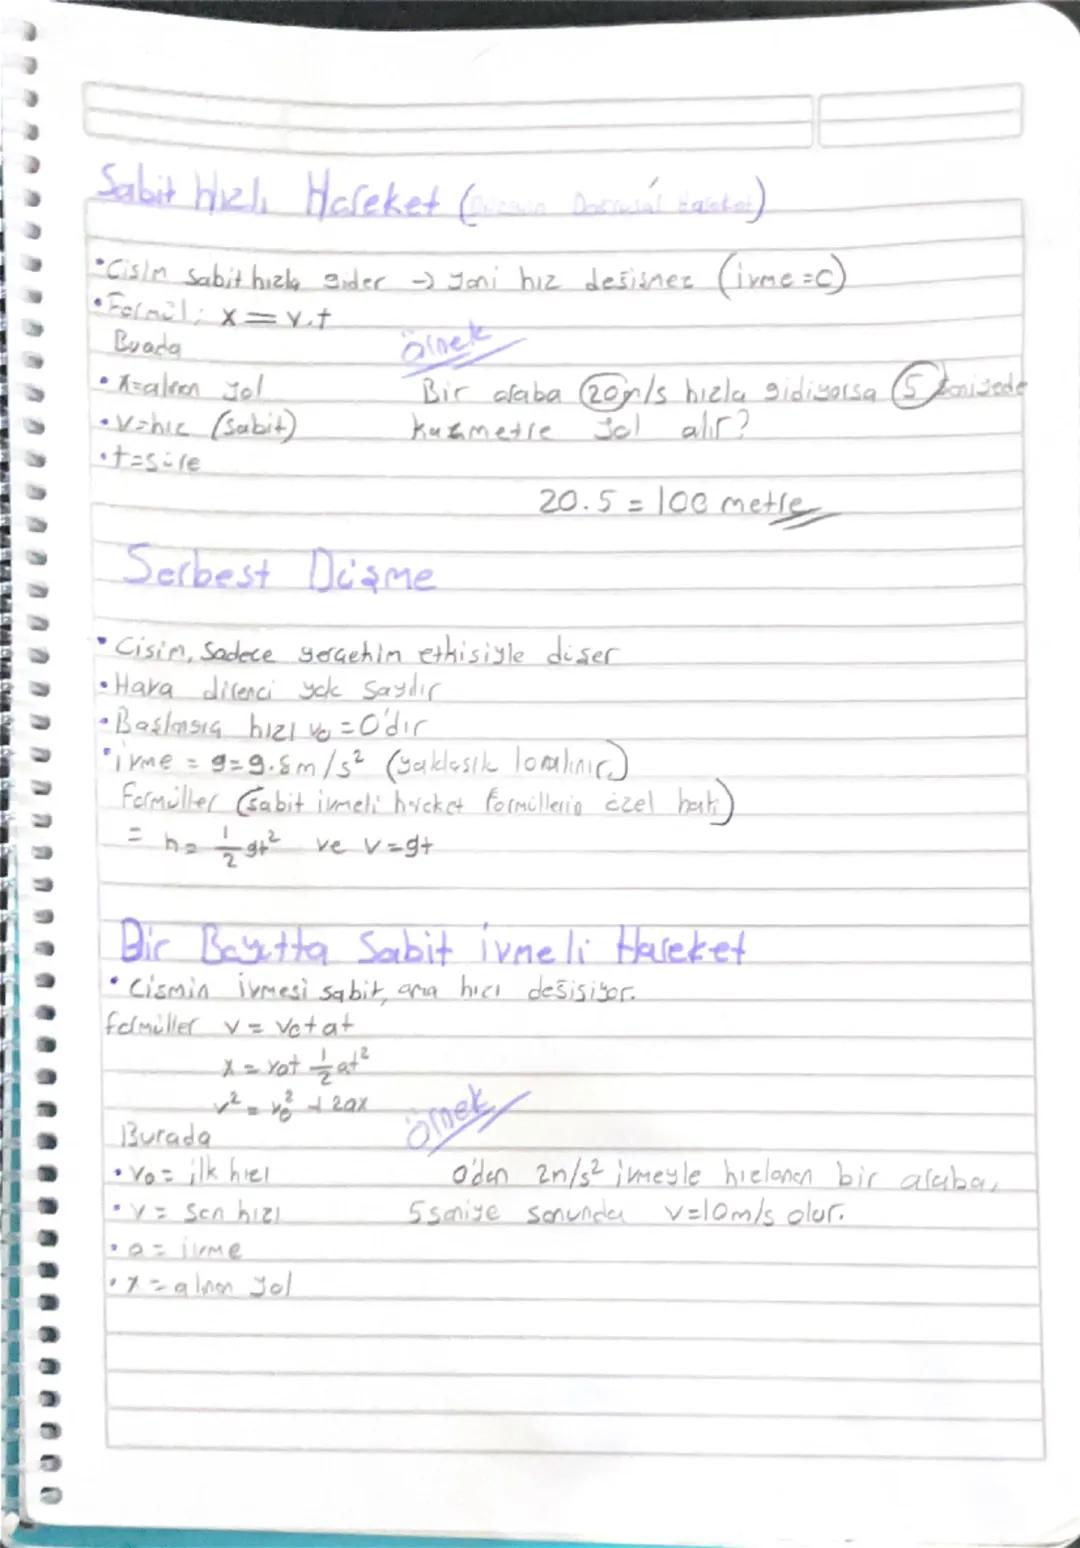 Sabit Hızlı Hareket (Düzgün Doğrusal Hareket)
• Cisim sabit hızla gider → yani hız değişmez (ivme = 0)
• Formül: x = v.t
Burada
örnek
• x = alınan yol
Bir araba 20 m/s hızla gidiyorsa 5 saniyede
• v = hız (sabit)
kaç metre yol alır?
• t = süre
20.5 = 100 metre
Serbest Düşme
• Cisim, sadece yerçekim etkisiyle düşer
• Hava direnci yok sayılır
• Başlangıç hızı v₀ = 0'dır
• ivme = g = 9.8 m/s² (yaklaşık 10 alınır.)
Formüller (sabit ivmeli hareket formüllerin özel hali)
= h = 1/2 gt² ve v = gt
Bir Boyutta Sabit ivmeli Hareket
• Cismin ivmesi sabit, ama hızı değişiyor.
formüller v = v₀ + at
x = v₀t 1/2 at²
v² = v₀² + 2ax
örnek
Burada
• v₀ = ilk hızı
0'dan 2m/s² ivmeyle hızlanan bir araba,
• v = son hızı
5 saniye sonunda v = 10 m/s olur.
• a = ivme
• x = alınan yol